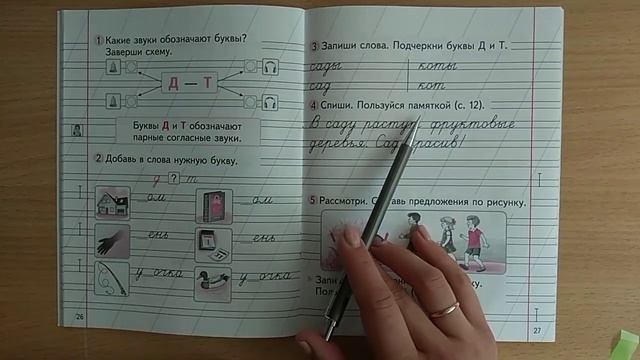 1 Какие звуки обозначают буквы?
Заверши схему.
Д — Т
Буквы Д и Т обозначают
парные согласные звуки.
2 Добавь в слова нужную букву.
д ? т
ом
ом
ень
ень
у очка
у очка
26
3 Запиши слова. Подчеркни буквы Д и Т.
сады коты
сад кот
4 Спиши. Пользуйся памяткой (с. 12).
В саду растут фруктовые
деревья. Сад красив!
5 Рассмотри. Составь предложения по рисунку.
27